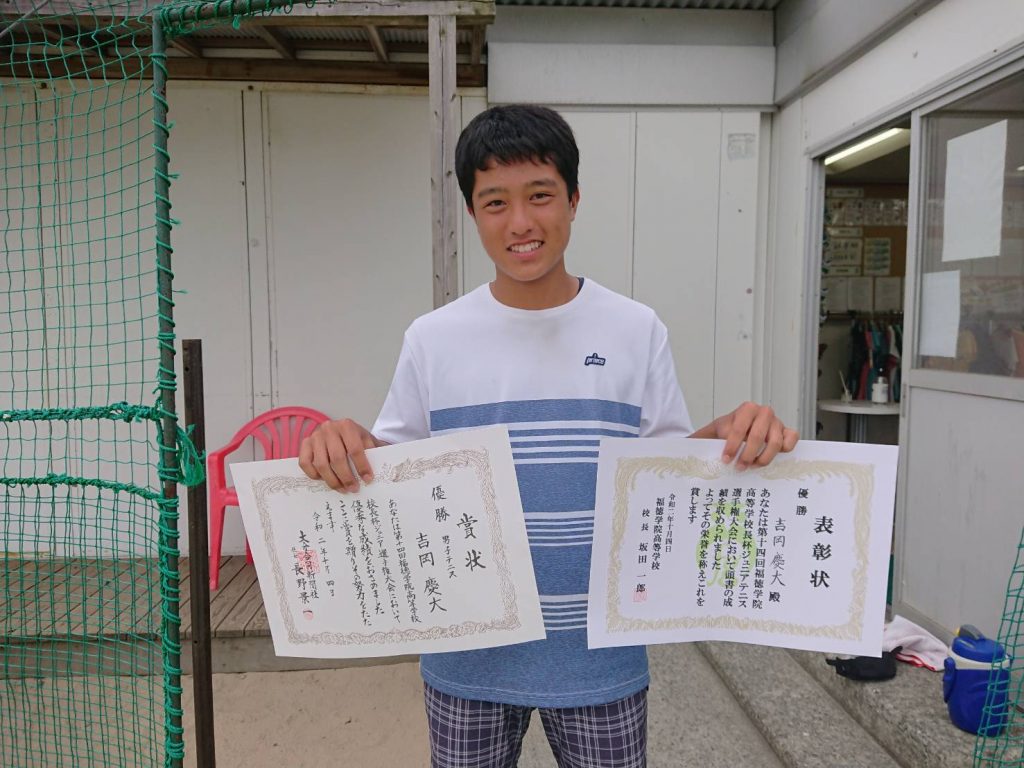 賞状
優勝 男子テニス
吉岡 慶大
あなたは第十四回福徳学院高等学校
校長杯ジュニア選手権大会において
優秀な成績をおさめました
ここに賞を贈りその努力をたた
えます
令和二年十月四日
長野景一
表彰状
優勝
吉岡 慶大 殿
あなたは第十四回福徳学院
高等学校長杯ジュニアテニス
選手権大会において頭書の成
績を収められました
よってその栄誉を称えこれを
賞します
令和二年十月四日
福徳学院高等学校
校長 坂田一郎
prince